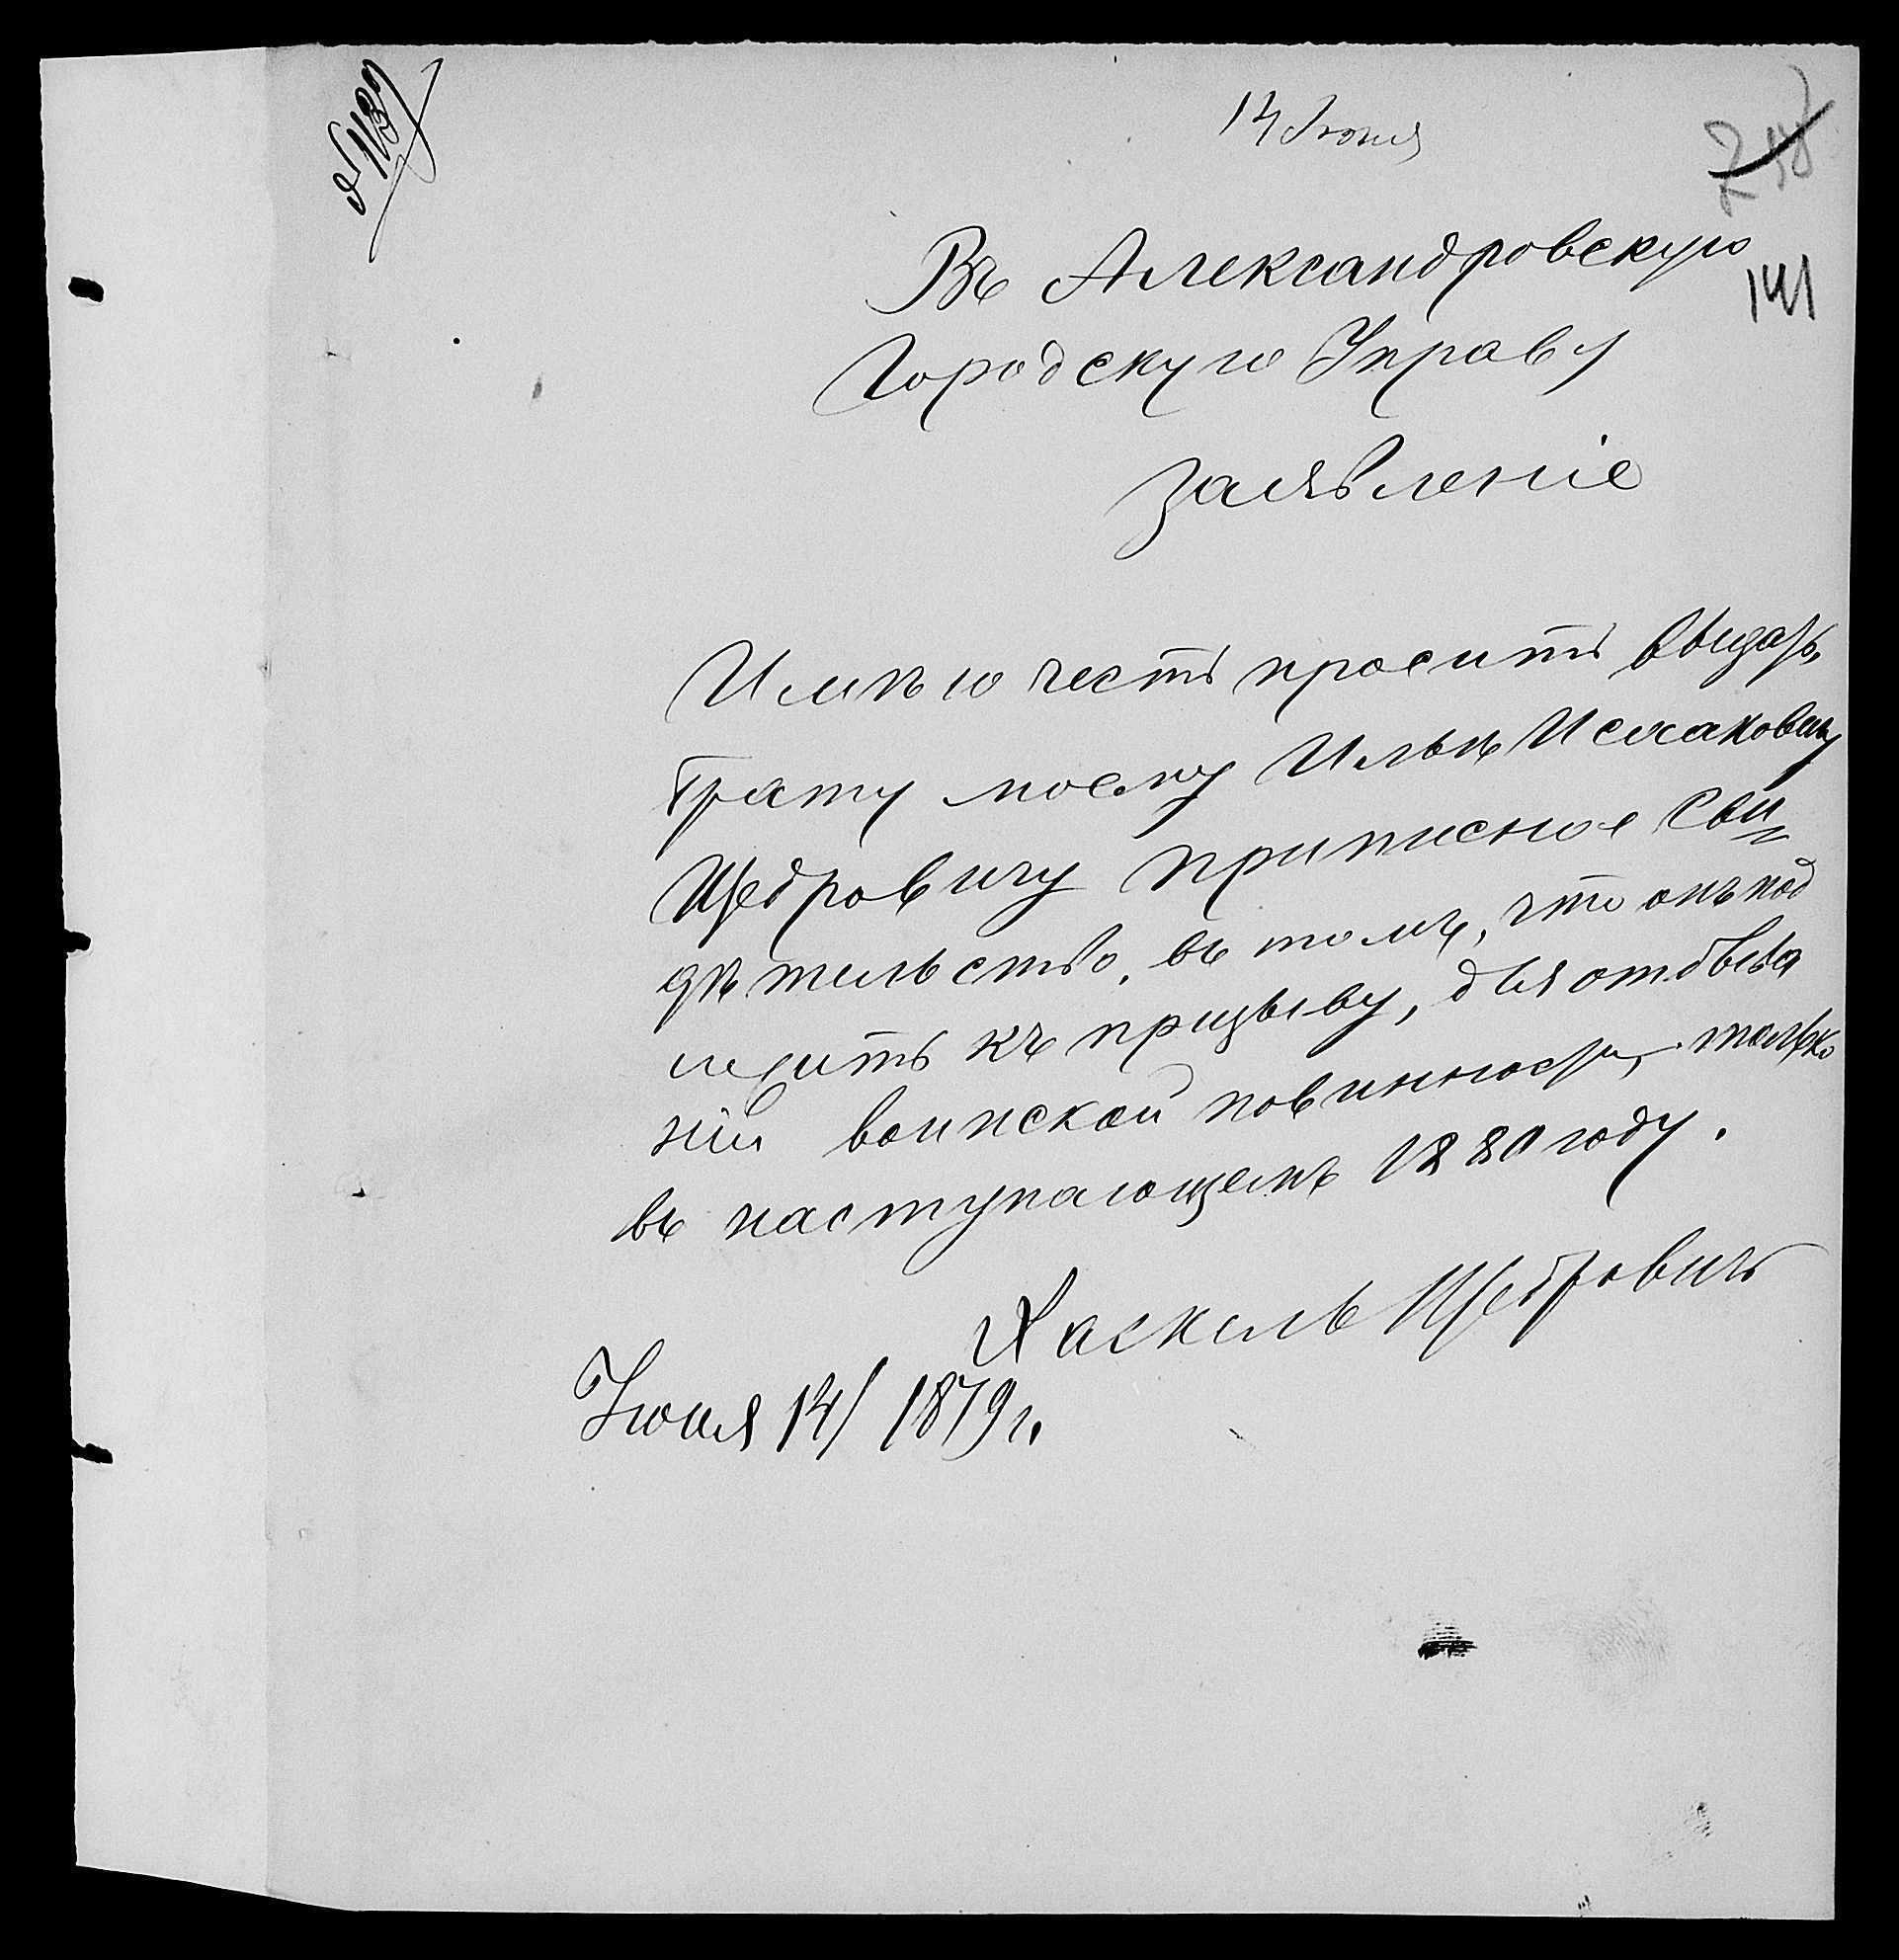 № 1137
14 Июня
141
Въ Александровскую
Городскую Управу
Заявленіе
Имѣю честь просить выдать
брату моему Ильѣ Исааковичу
Щедровичу приписное сви=
дѣтельство, въ томъ, что онъ под
лежитъ къ призыву, для отбыва
нія воинской повинности, только
въ наступающемъ 1880 году.
Хаскель Щедровичъ
Июня 14/ 1879 г.